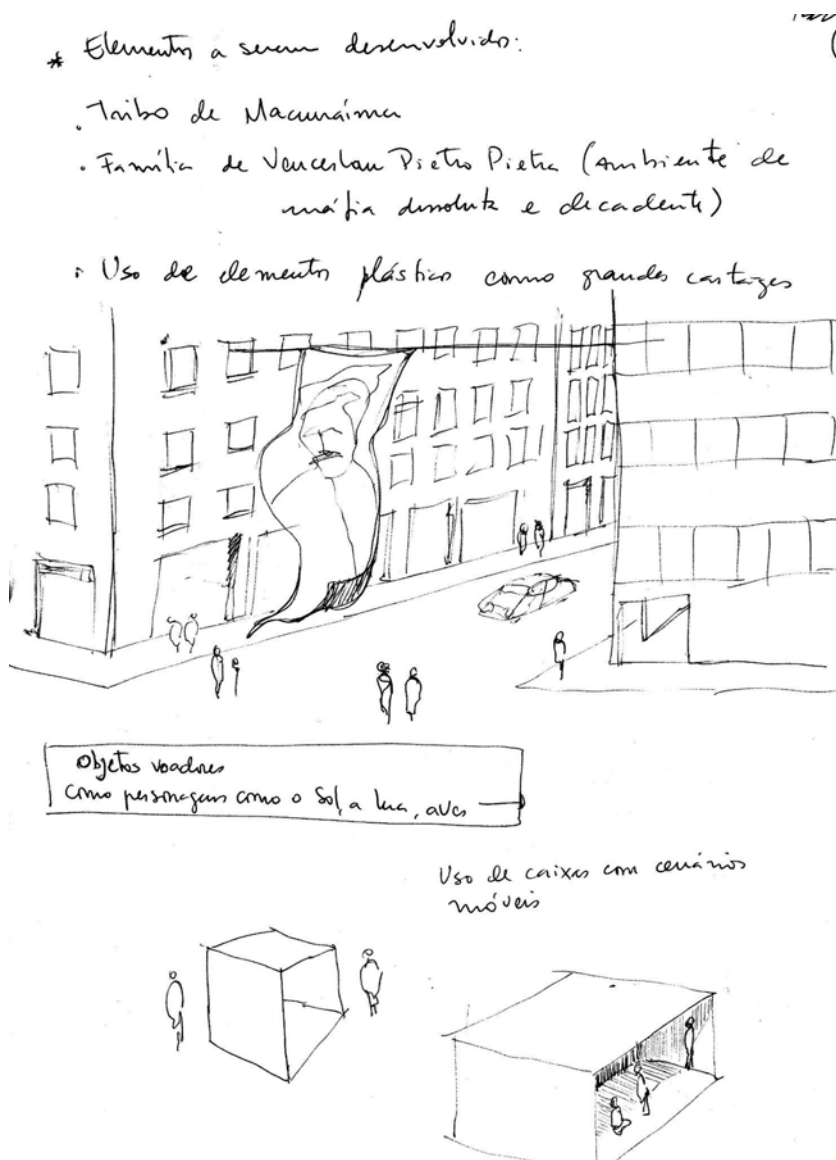 * Elementos a serem desenvolvidos:
. Tribo de Macunaíma
. Família de Venceslau Pietro Pietra (ambiente de
máfia dissoluta e decadente)
. Uso de elementos plásticos como grandes cartazes
Objetos voadores
como personagens como o Sol, a lua, aves
Uso de caixas com cenários
móveis